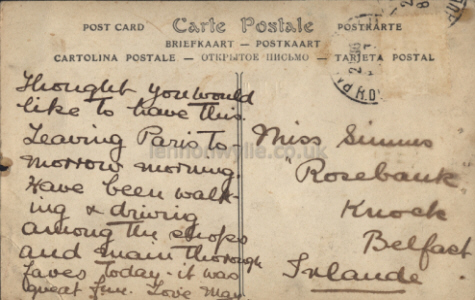 POST CARD Carte Postale POSTKARTE
BRIEFKAART - POSTKAART
CARTOLINA POSTALE - ОТКРЫТОЕ ПИСЬМО - TARJETA POSTAL
Thought you would
like to have this.
Leaving Paris to-
morrow morning.
Have been walk-
ing & driving
among the shops
and main thorough
fares today - it was
great fun. Love May
Miss Simms
"Rosebank"
Knock
Belfast
Irlande
lennonwylie.co.uk